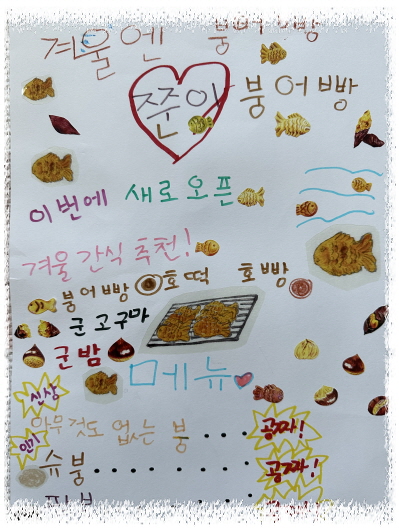 겨울엔
쭌아 붕어빵
이번에 새로오픈
겨울간식 추천!
붕어빵 호떡 호빵
군고구마
군밤
메뉴
신상
아무것도 없는 붕 . . . 공짜!
인기
슈붕 . . . . . . . . 공짜!